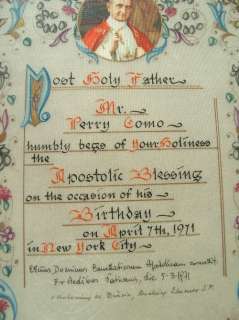 Most Holy Father
Mr.
Perry Como
humbly begs of Your Holiness
the
Apostolic Blessing
on the occasion of his
Birthday
on April 7th, 1971
in New York City
Benedictionem
Ex Aedibus Vaticanis, die 5-3-1971